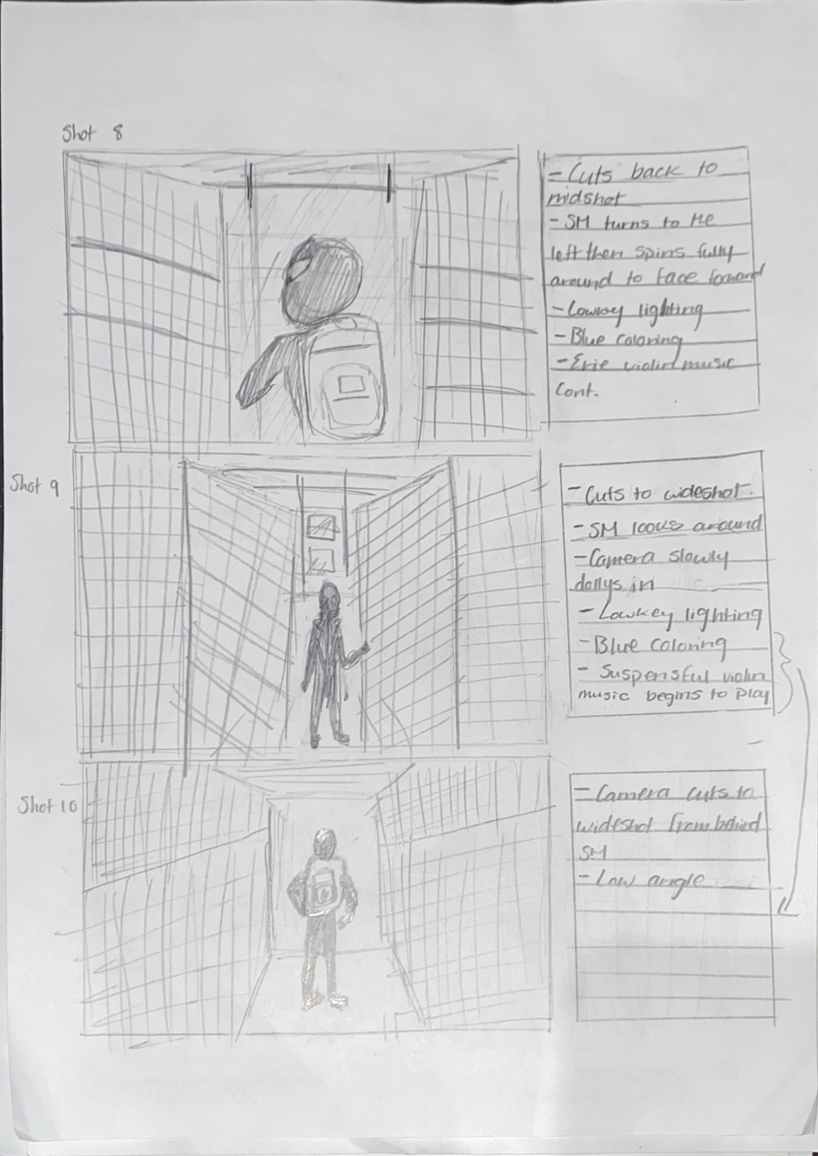 Shot 8
- Cuts back to
midshot
- SM turns to the
left then spins fully
around to face forward
- Lowkey lighting
- Blue coloring
- Erie violin music
Cont.
Shot 9
- Cuts to wideshot.
- SM looks around
- Camera slowly
dollys in
- Lowkey lighting
- Blue coloring
- Suspensful violin
music begins to play
Shot 10
- Camera cuts to
wideshot from behind
SM
- Low angle